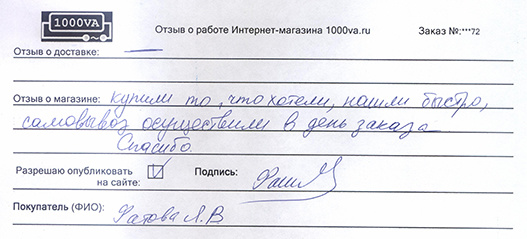 1000VA
Отзыв о работе Интернет-магазина 1000va.ru
Заказ №:***72
Отзыв о доставке: —
Отзыв о магазине: купили то, что хотели, нашли быстро,
самовывоз осуществили в день заказа
Спасибо.
Разрешаю опубликовать
на сайте:
Подпись:
Покупатель (ФИО): Фатова Л.В